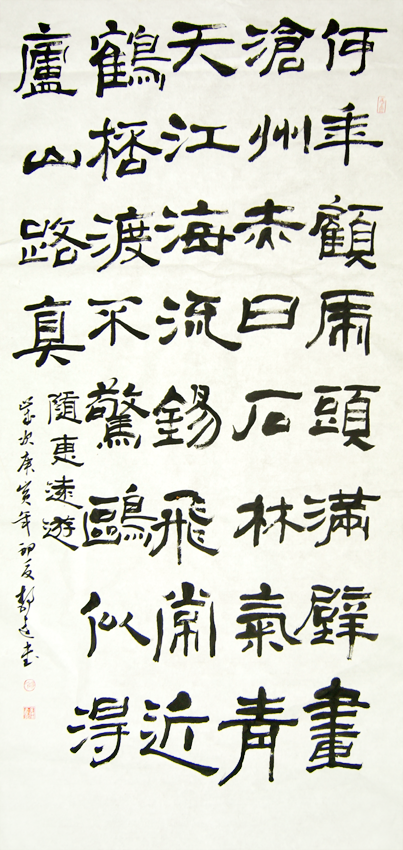 何年顧虎頭滿壁畫
滄州赤日石林氣青
天江海流錫飛常近
鶴桮渡不驚鷗似得
廬山路真
隨惠遠遊
歲次庚寅年初夏書